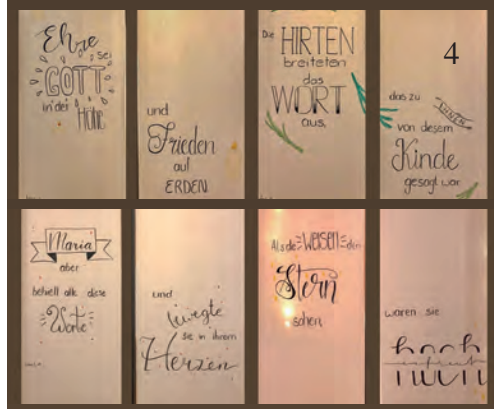 Ehre
sei
GOTT
in der
Höhe
und
Frieden
auf
ERDEN
Die HIRTEN
breiteten
das
WORT
aus,
4
das zu IHNEN
von diesem
Kinde
gesagt war
Maria
aber
behielt alle diese
Worte
und
bewegte
sie in ihrem
Herzen
Als die WEISEN den
Stern
sahen,
waren sie
hoch
erfreut